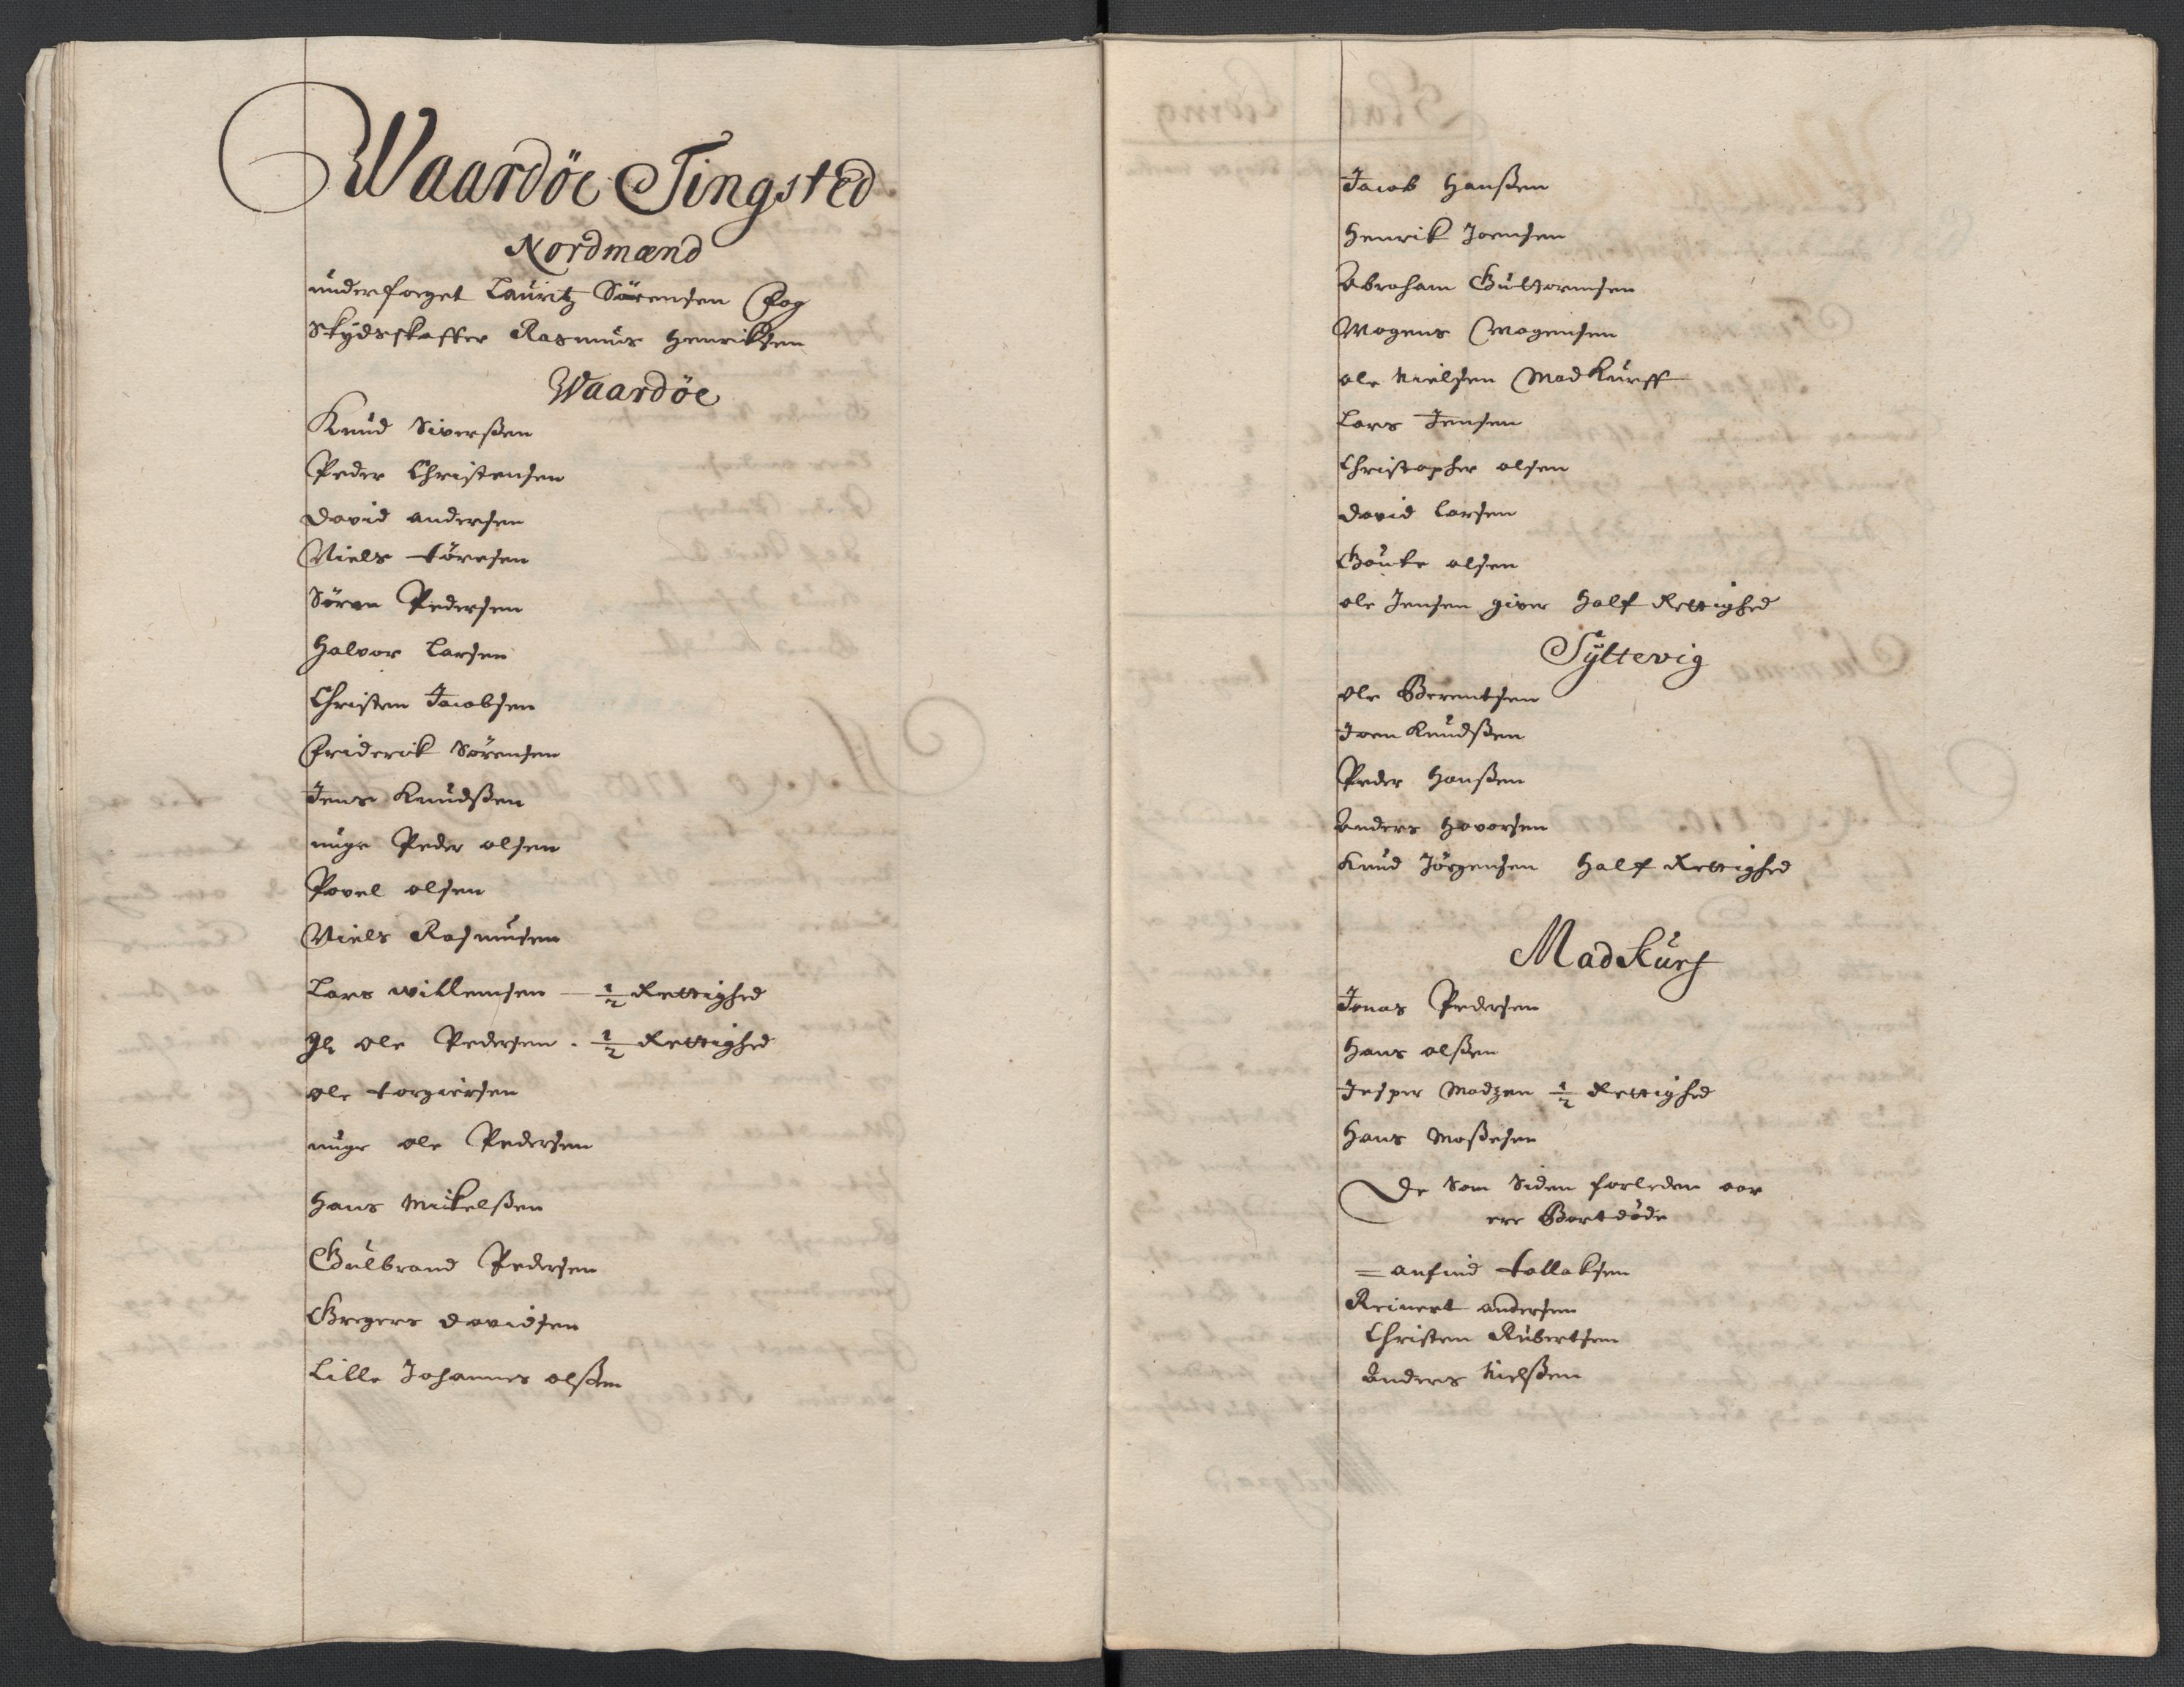 Waardöe Tingsted
Nordmænd
underfoget Lauritz Sörensen Fog
Skydsskaffer Rasmus Henriksen
Waardöe
Knud Siverßen
Peder Christensen
David andersen
Niels törresen
Sören Pedersen
Halvor Larsen
Christen Jacobsen
Friderik Sörensen
Jens Knudßen
unge Peder olsen
Povel olsen
Niels Rasmusen
Lars willemsen — 1/2 Rettighed
Gl ole Pedersen . 1/2 Rettighed
ole torgiersen
unge ole Pedersen
Hans Mikelßen
Gulbrand Pedersen
Gregers Davidsen
Lille Johannes olßen
Jacob Hanßen
Henrik Joensen
Abraham Guttormsen
Mogens Mogensen
ole Nielsen Madkurff
Lars Jensen
Christopher olsen
David Larsen
Goute olsen
ole Jensen giver Half Rettighed
Syltevig
ole Berentsen
Joen Knudßen
Peder Hanßen
Anders Havorsen
Knud Jörgensen Half Rettighed
Madkurf
Jonas Pedersen
Hans olßen
Jesper Madzen 1/2 Rettighed
Hans Moßesen
De Som Siden forleden aar
ere Bortdöde
= anfind tollaksen
Reinert andersen
Christen Rubertsen
Anders Nielßen